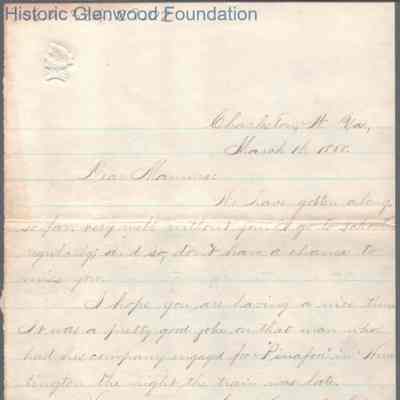 Historic Glenwood Foundation
Charleston, W. Va.,
March 16, 188
Dear Mamma:
We have gotten along
so far very well without you. I go to school
regularly, and so, don't have a chance to
miss you.
I hope you are having a nice time
It was a pretty good joke on that man who
had his company engaged for "Pinafore" in Hun-
tington the night the train was late.